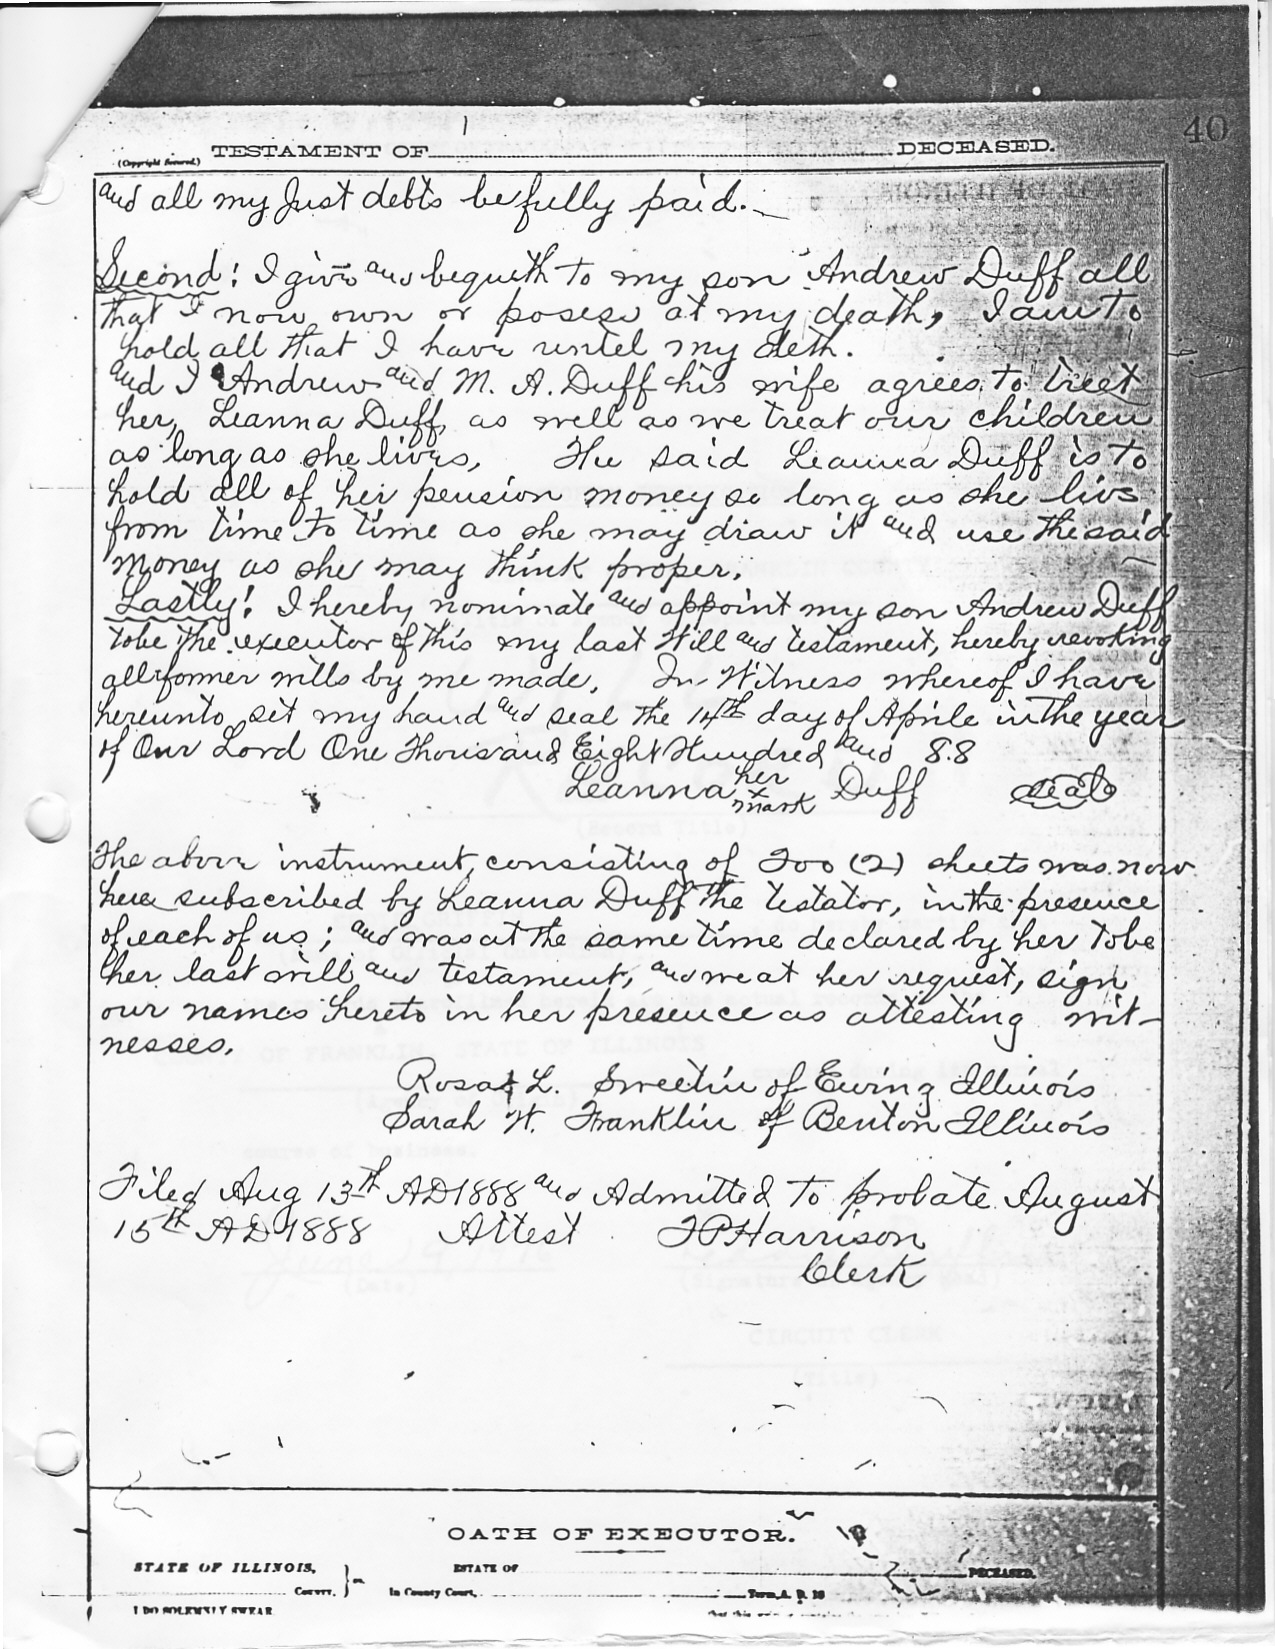 40
(Copyright Secured.) TESTAMENT OF DECEASED.
and all my Just debts be fully paid.
Second: I give and bequeth to my son Andrew Duff all
that I now own or posess at my death, I am to
hold all that I have untel my deth.
and I Andrew and M. A. Duff his wife agrees to treet
her, Leanna Duff, as well as we treat our children
as long as she lives, The said Leanna Duff is to
hold all of her pension money so long as she livs
from time to time as she may draw it and use the said
money as she may think proper.
Lastly: I hereby nominate and appoint my son Andrew Duff
to be the executor of this my last Will and testament, hereby revoking
all former wills by me made. In Witness whereof I have
hereunto set my hand and seal the 14th day of Aprile in the year
of Our Lord One Thousand Eight Hundred and 88
Leanna her x mark Duff seal
The above instrument, consisting of Too (2) sheets was now
here subscribed by Leanna Duff the testator, in the presence
of each of us; and was at the same time declared by her to be
her last will and testament, and we at her request, sign
our names hereto in her presence as attesting wit-
nesses.
L. Sweetin of Ewing Illinois
Sarah W. Franklin of Benton Illinois
Filed Aug 13th AD 1888 and Admitted to probate August
15th AD 1888 Attest Harrison
Clerk
OATH OF EXECUTOR.
STATE OF ILLINOIS, ESTATE OF DECEASED.
County. In County Court, Term, A. D. 18
I DO SOLEMNLY SWEAR